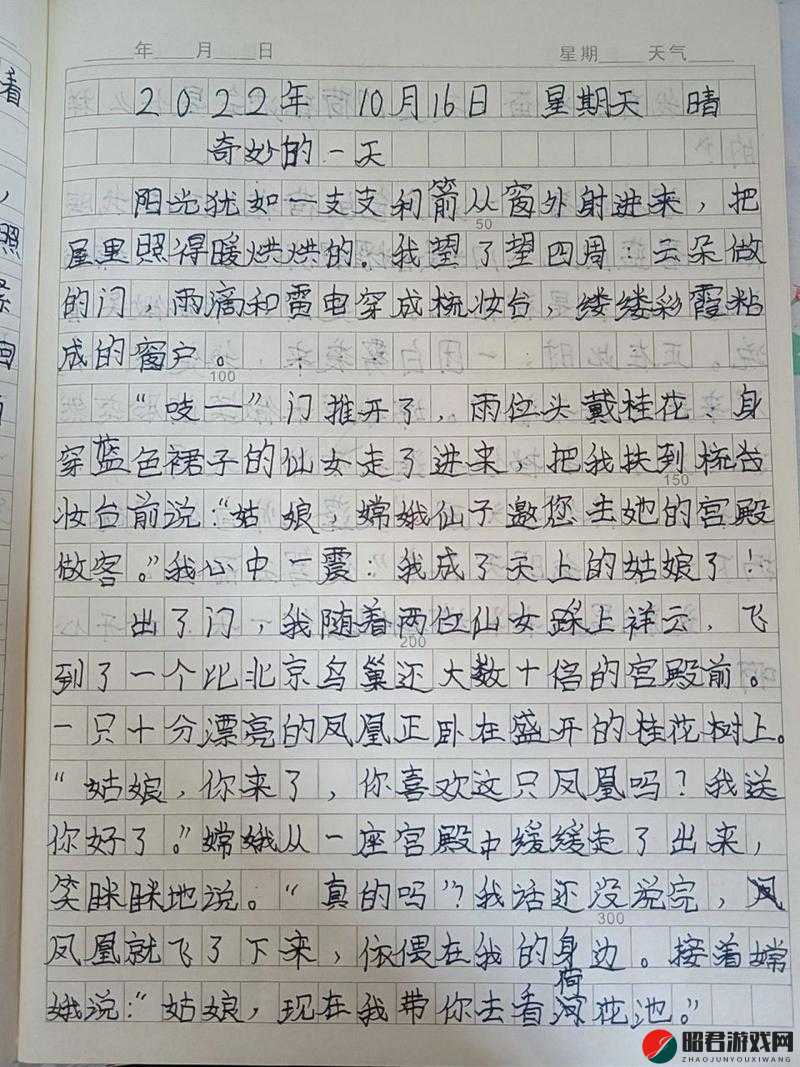 年 月 日 星期 天气
2022年 10月16日 星期天 晴
奇妙的一天
阳光犹如一支支利箭从窗外射进来，把
50
屋里照得暖烘烘的。我望了望四周：云朵做
的门，雨滴和雷电穿成梳妆台，缕缕彩霞粘
成的窗户。
100
“吱—”门推开了，雨位头戴桂花、身
穿蓝色裙子的仙女走了进来，把我扶到梳台
150
妆台前说：“姑娘，嫦娥仙子邀您去她的宫殿
做客。”我心中一震：我成了天上的姑娘了！
出了门，我随着两位仙女踩上祥云，飞
200
到了一个比北京鸟巢还大数十倍的宫殿前。
一只十分漂亮的凤凰正卧在盛开的桂花树上。
“姑娘，你来了，你喜欢这只凤凰吗？我送
你好了。”嫦娥从一座宫殿中缓缓走了出来，
笑眯眯地说。“真的吗”？我话还没说完，
300
凤凰就飞了下来，依偎在我的身边。接着嫦
娥说：“姑娘，现在我带你去看荷花池。”
看
照
昭君游戏网
ZHAOJUNYOUXIWANG